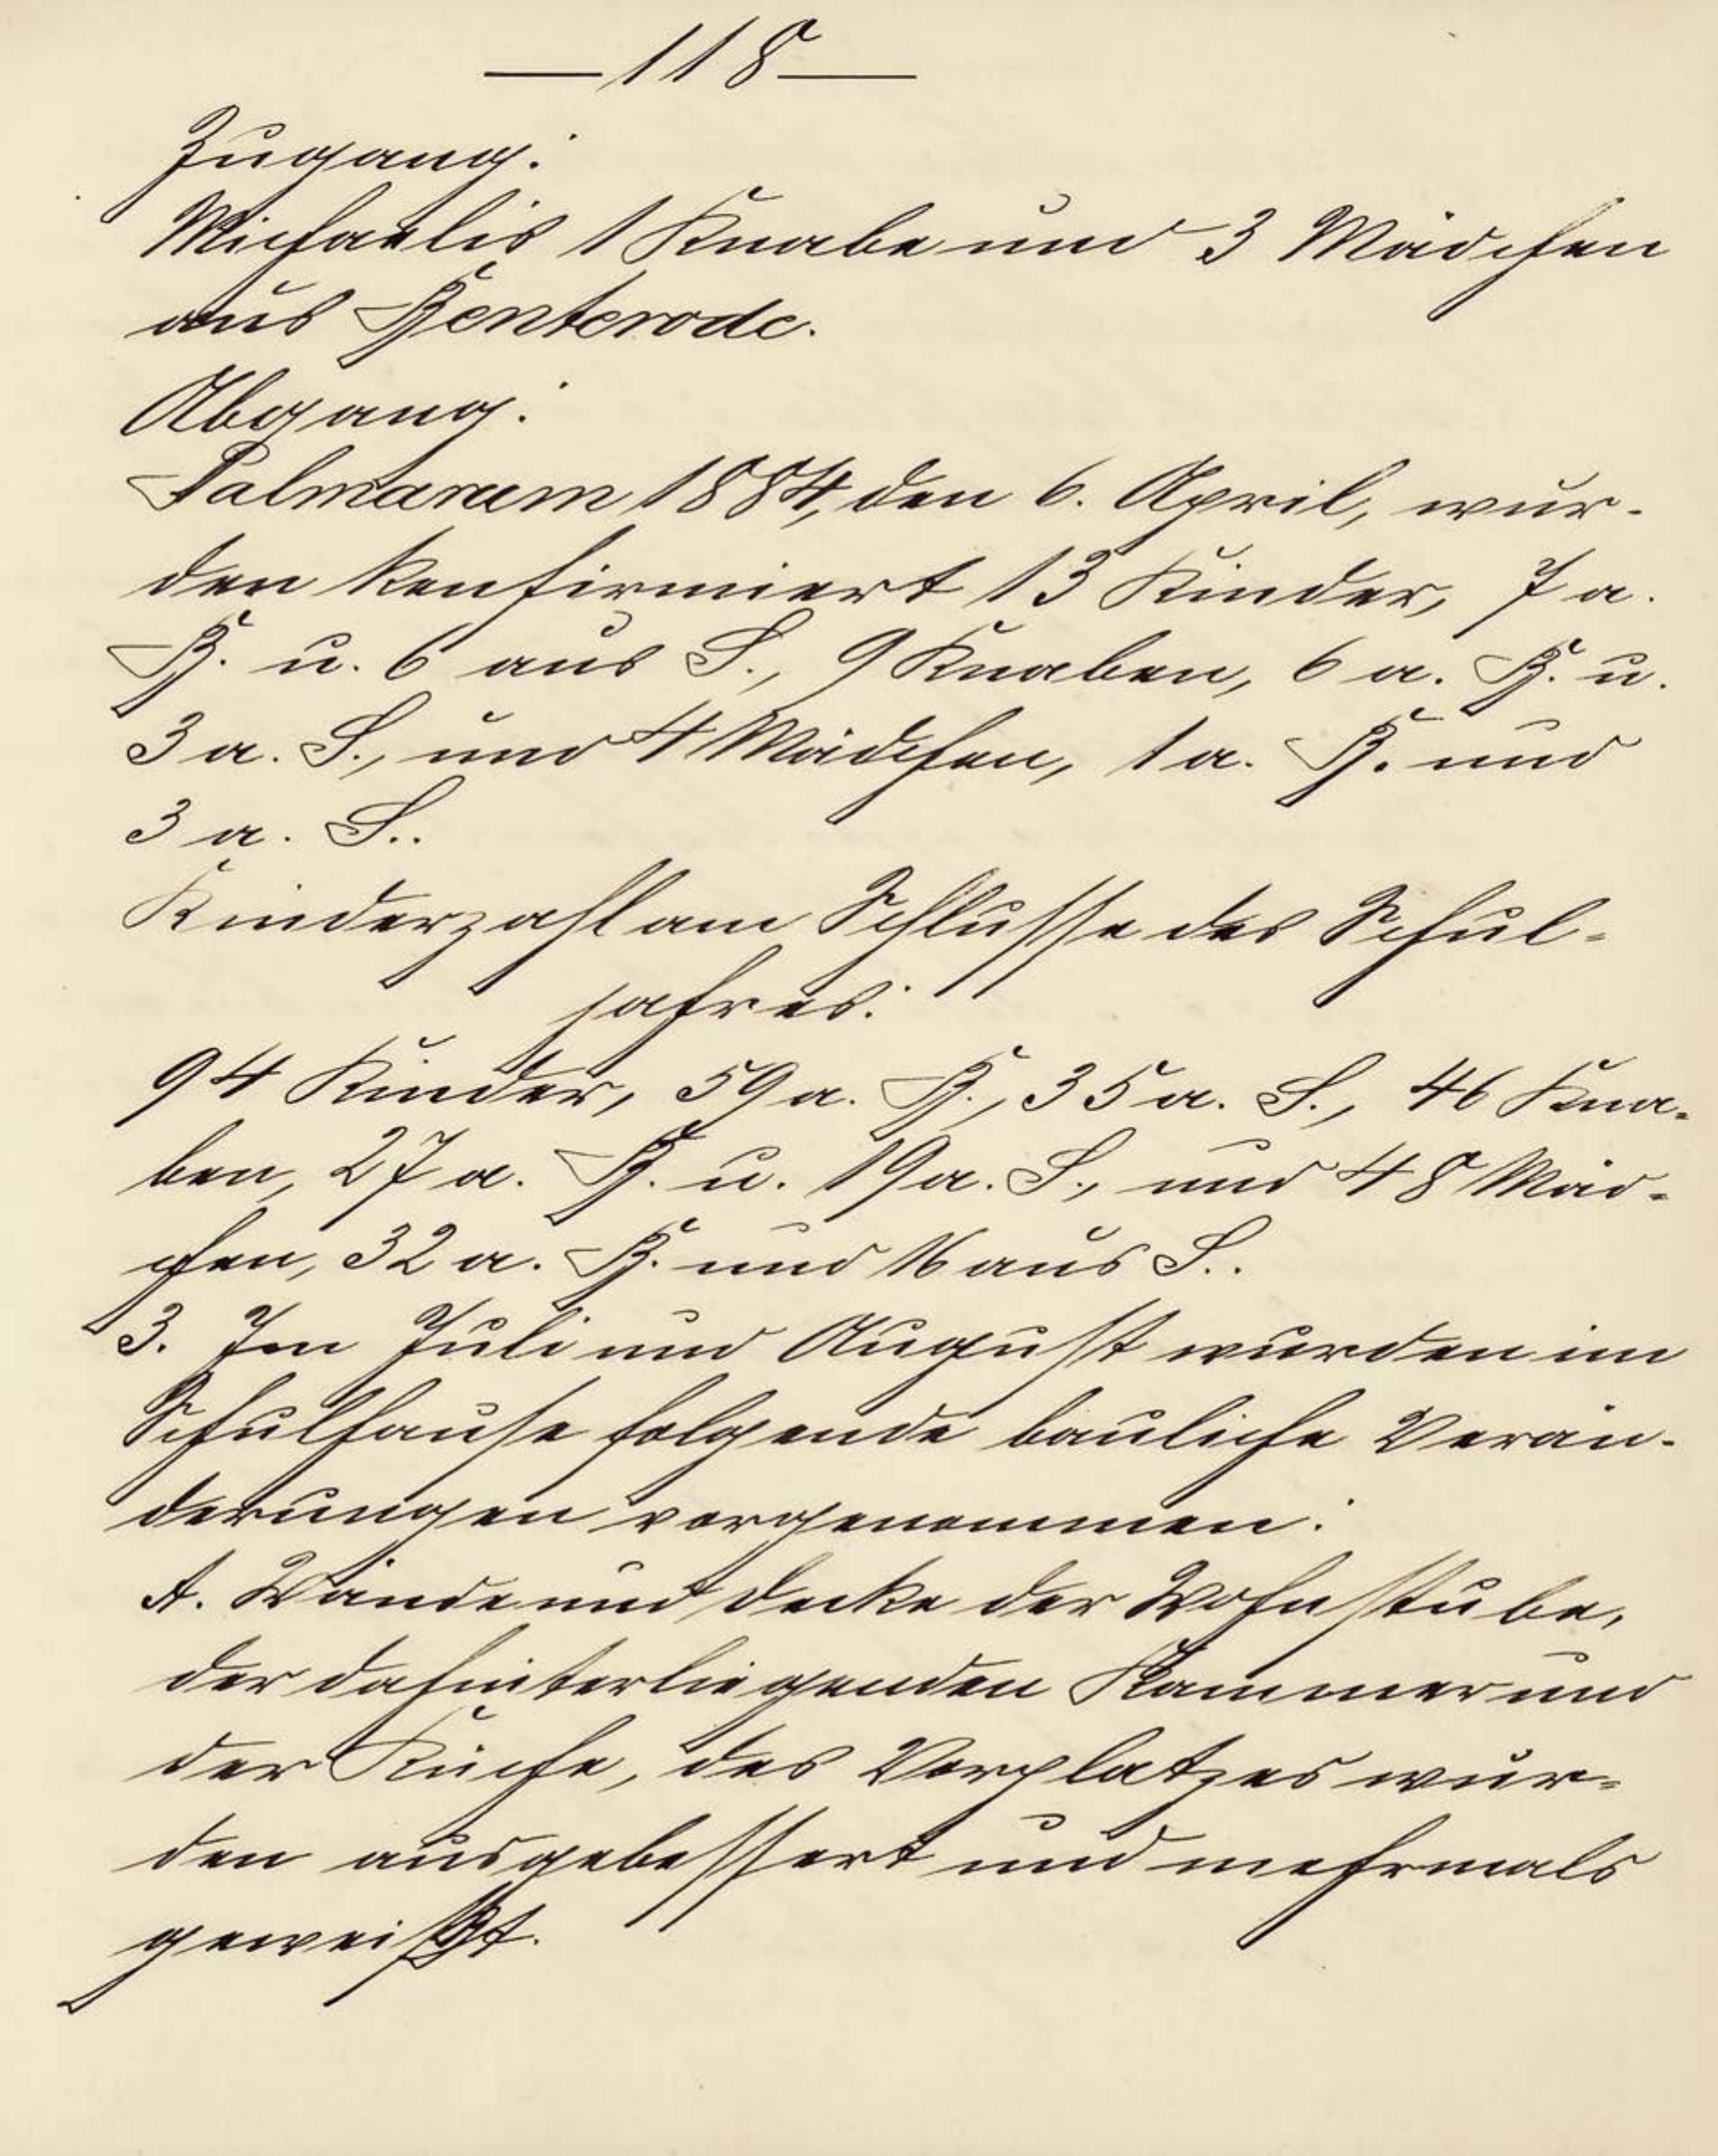 —118—
Zugang:
Michaelis 1 Knabe und 3 Mädchen
aus Benterode.
Abgang:
Palmarum 1884, den 6. April, wur-
den konfirmiert 13 Kinder, 7 a.
B. u. 6 aus S., 9 Knaben, 6 a. B. u.
3 a. S., und 4 Mädchen, 1 a. B. und
3 a. S..
Kinderzahl am Schlusse des Schul-
jahres:
94 Kinder, 59 a. B., 35 a. S., 46 Kna-
ben, 27 a. B. u. 19 a. S., und 48 Mäd-
chen, 32 a. B. und 16 aus S..
3. Im Juli und August wurden im
Schulhause folgende bauliche Verän-
derungen vorgenommen:
A. Wände und Decke der Wohnstube,
der dahinterliegenden Kammer und
der Küche, des Vorplatzes wur-
den ausgebessert und mehrmals
geweißt.